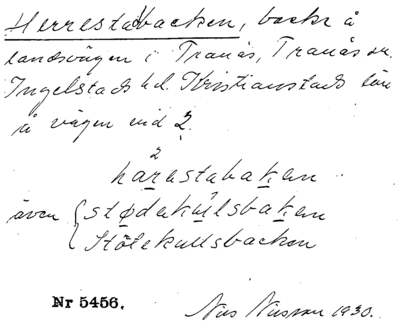 Herrestabacken, backe å
landsvägen i Tranås, Tranås sn.
Ingelstads hd. Kristianstads län
å vägen vid 2.
2
harestabakan
även { stødakulsbakan
Stötekullsbacken
Nr 5456.
Nils Nilsson 1930.